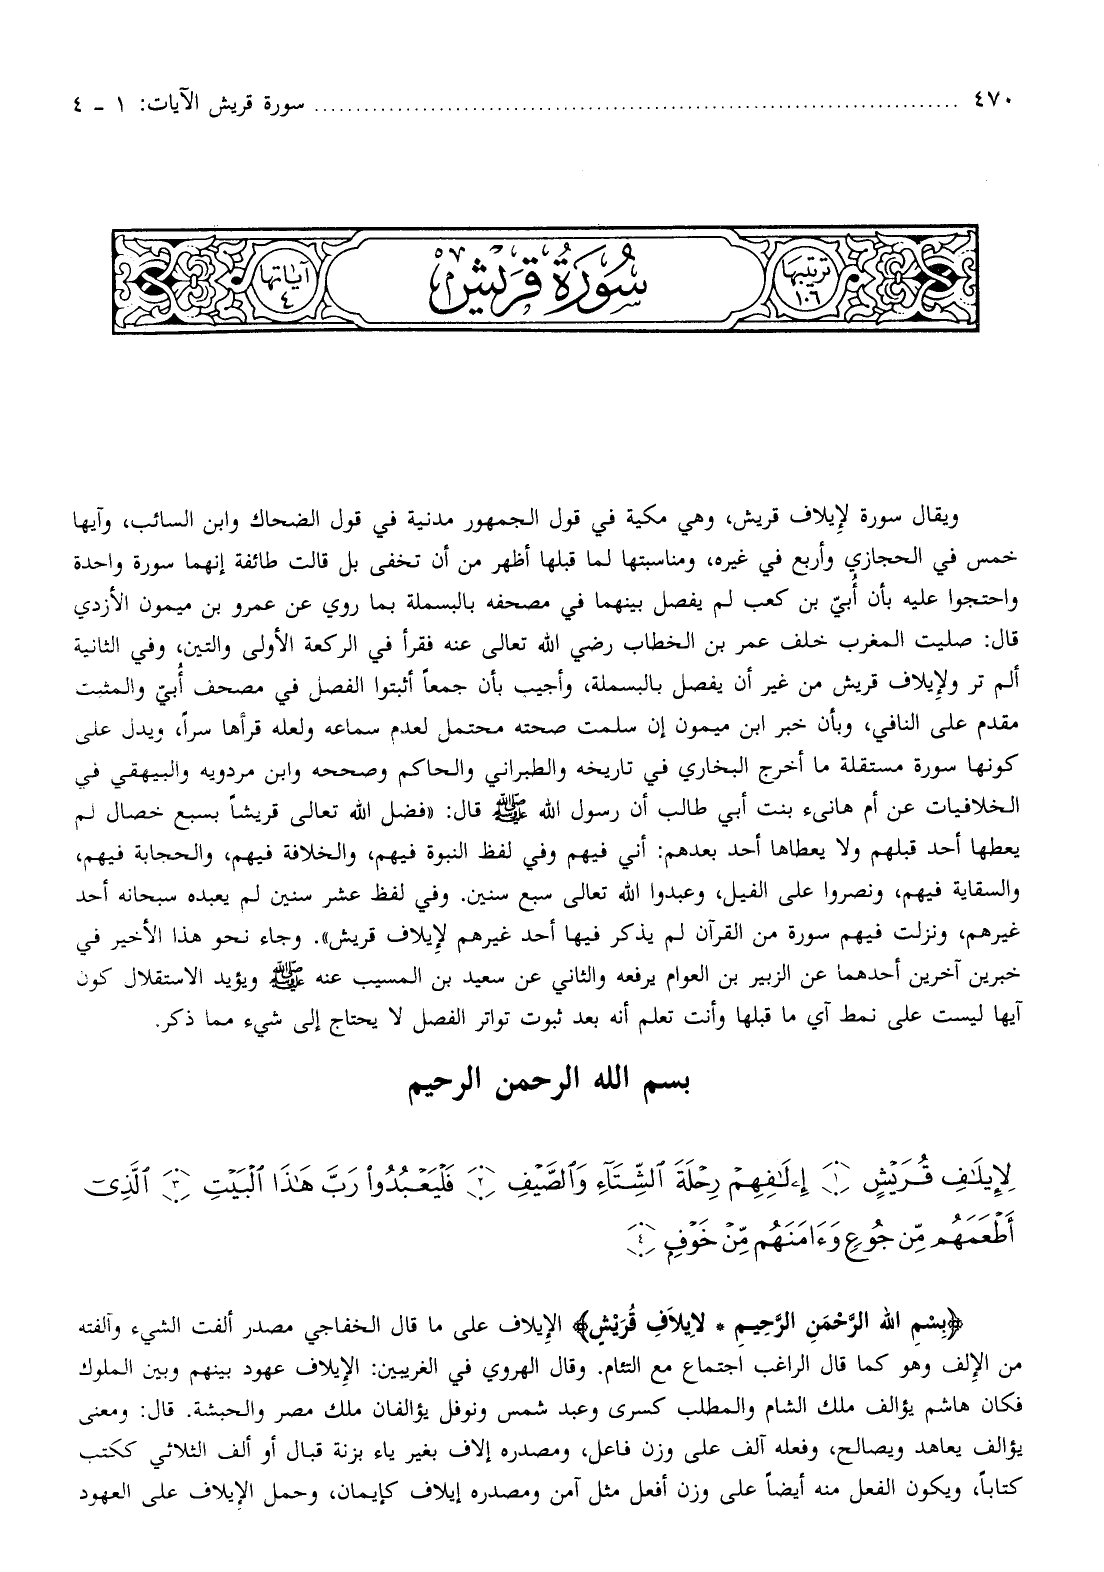 ٤٧٠ ........ سورة قريش الآيات: ١ - ٤
ترتيبها ١٠٦
سُورَةُ قُرَيْشٍ
آياتها ٤
ويقال سورة لإيلاف قريش، وهي مكية في قول الجمهور مدنية في قول الضحاك وابن السائب، وآيها
خمس في الحجازي وأربع في غيره، ومناسبتها لما قبلها أظهر من أن تخفى بل قالت طائفة إنهما سورة واحدة
واحتجوا عليه بأن أُبيّ بن كعب لم يفصل بينهما في مصحفه بالبسملة بما روي عن عمرو بن ميمون الأزدي
قال: صليت المغرب خلف عمر بن الخطاب رضي الله تعالى عنه فقرأ في الركعة الأولى والتين، وفي الثانية
ألم تر ولإيلاف قريش من غير أن يفصل بالبسملة، وأجيب بأن جمعاً أثبتوا الفصل في مصحف أُبيّ والمثبت
مقدم على النافي، وبأن خبر ابن ميمون إن سلمت صحته محتمل لعدم سماعه ولعله قرأها سراً، ويدل على
كونها سورة مستقلة ما أخرج البخاري في تاريخه والطبراني والحاكم وصححه وابن مردويه والبيهقي في
الخلافيات عن أم هانىء بنت أبي طالب أن رسول الله ﷺ قال: «فضل الله تعالى قريشاً بسبع خصال لم
يعطها أحد قبلهم ولا يعطاها أحد بعدهم: أني فيهم وفي لفظ النبوة فيهم، والخلافة فيهم، والحجابة فيهم،
والسقاية فيهم، ونصروا على الفيل، وعبدوا الله تعالى سبع سنين. وفي لفظ عشر سنين لم يعبده سبحانه أحد
غيرهم، ونزلت فيهم سورة من القرآن لم يذكر فيها أحد غيرهم لإيلاف قريش». وجاء نحو هذا الأخير في
خبرين آخرين أحدهما عن الزبير بن العوام يرفعه والثاني عن سعيد بن المسيب عنه ﷺ ويؤيد الاستقلال كون
آيها ليست على نمط آي ما قبلها وأنت تعلم أنه بعد ثبوت تواتر الفصل لا يحتاج إلى شيء مما ذكر.
بسم الله الرحمن الرحيم
لِإِيلَٰفِ قُرَيْشٍ ١ إِۦلَٰفِهِمْ رِحْلَةَ ٱلشِّتَآءِ وَٱلصَّيْفِ ٢ فَلْيَعْبُدُوا۟ رَبَّ هَٰذَا ٱلْبَيْتِ ٣ ٱلَّذِىٓ
أَطْعَمَهُم مِّن جُوعٍ وَءَامَنَهُم مِّنْ خَوْفٍ ٤
﴿بِسْمِ الله الرَّحْمَنِ الرَّحِيمِ * لإيلاَفِ قُرَيْشٍ﴾ الإيلاف على ما قال الخفاجي مصدر ألفت الشيء وآلفته
من الإلف وهو كما قال الراغب اجتماع مع التئام. وقال الهروي في الغريبين: الإيلاف عهود بينهم وبين الملوك
فكان هاشم يؤالف ملك الشام والمطلب كسرى وعبد شمس ونوفل يؤالفان ملك مصر والحبشة. قال: ومعنى
يؤالف يعاهد ويصالح، وفعله آلف على وزن فاعل، ومصدره إلاف بغير ياء بزنة قبال أو ألف الثلاثي ككتب
كتاباً، ويكون الفعل منه أيضاً على وزن أفعل مثل آمن ومصدره إيلاف كإيمان، وحمل الإيلاف على العهود